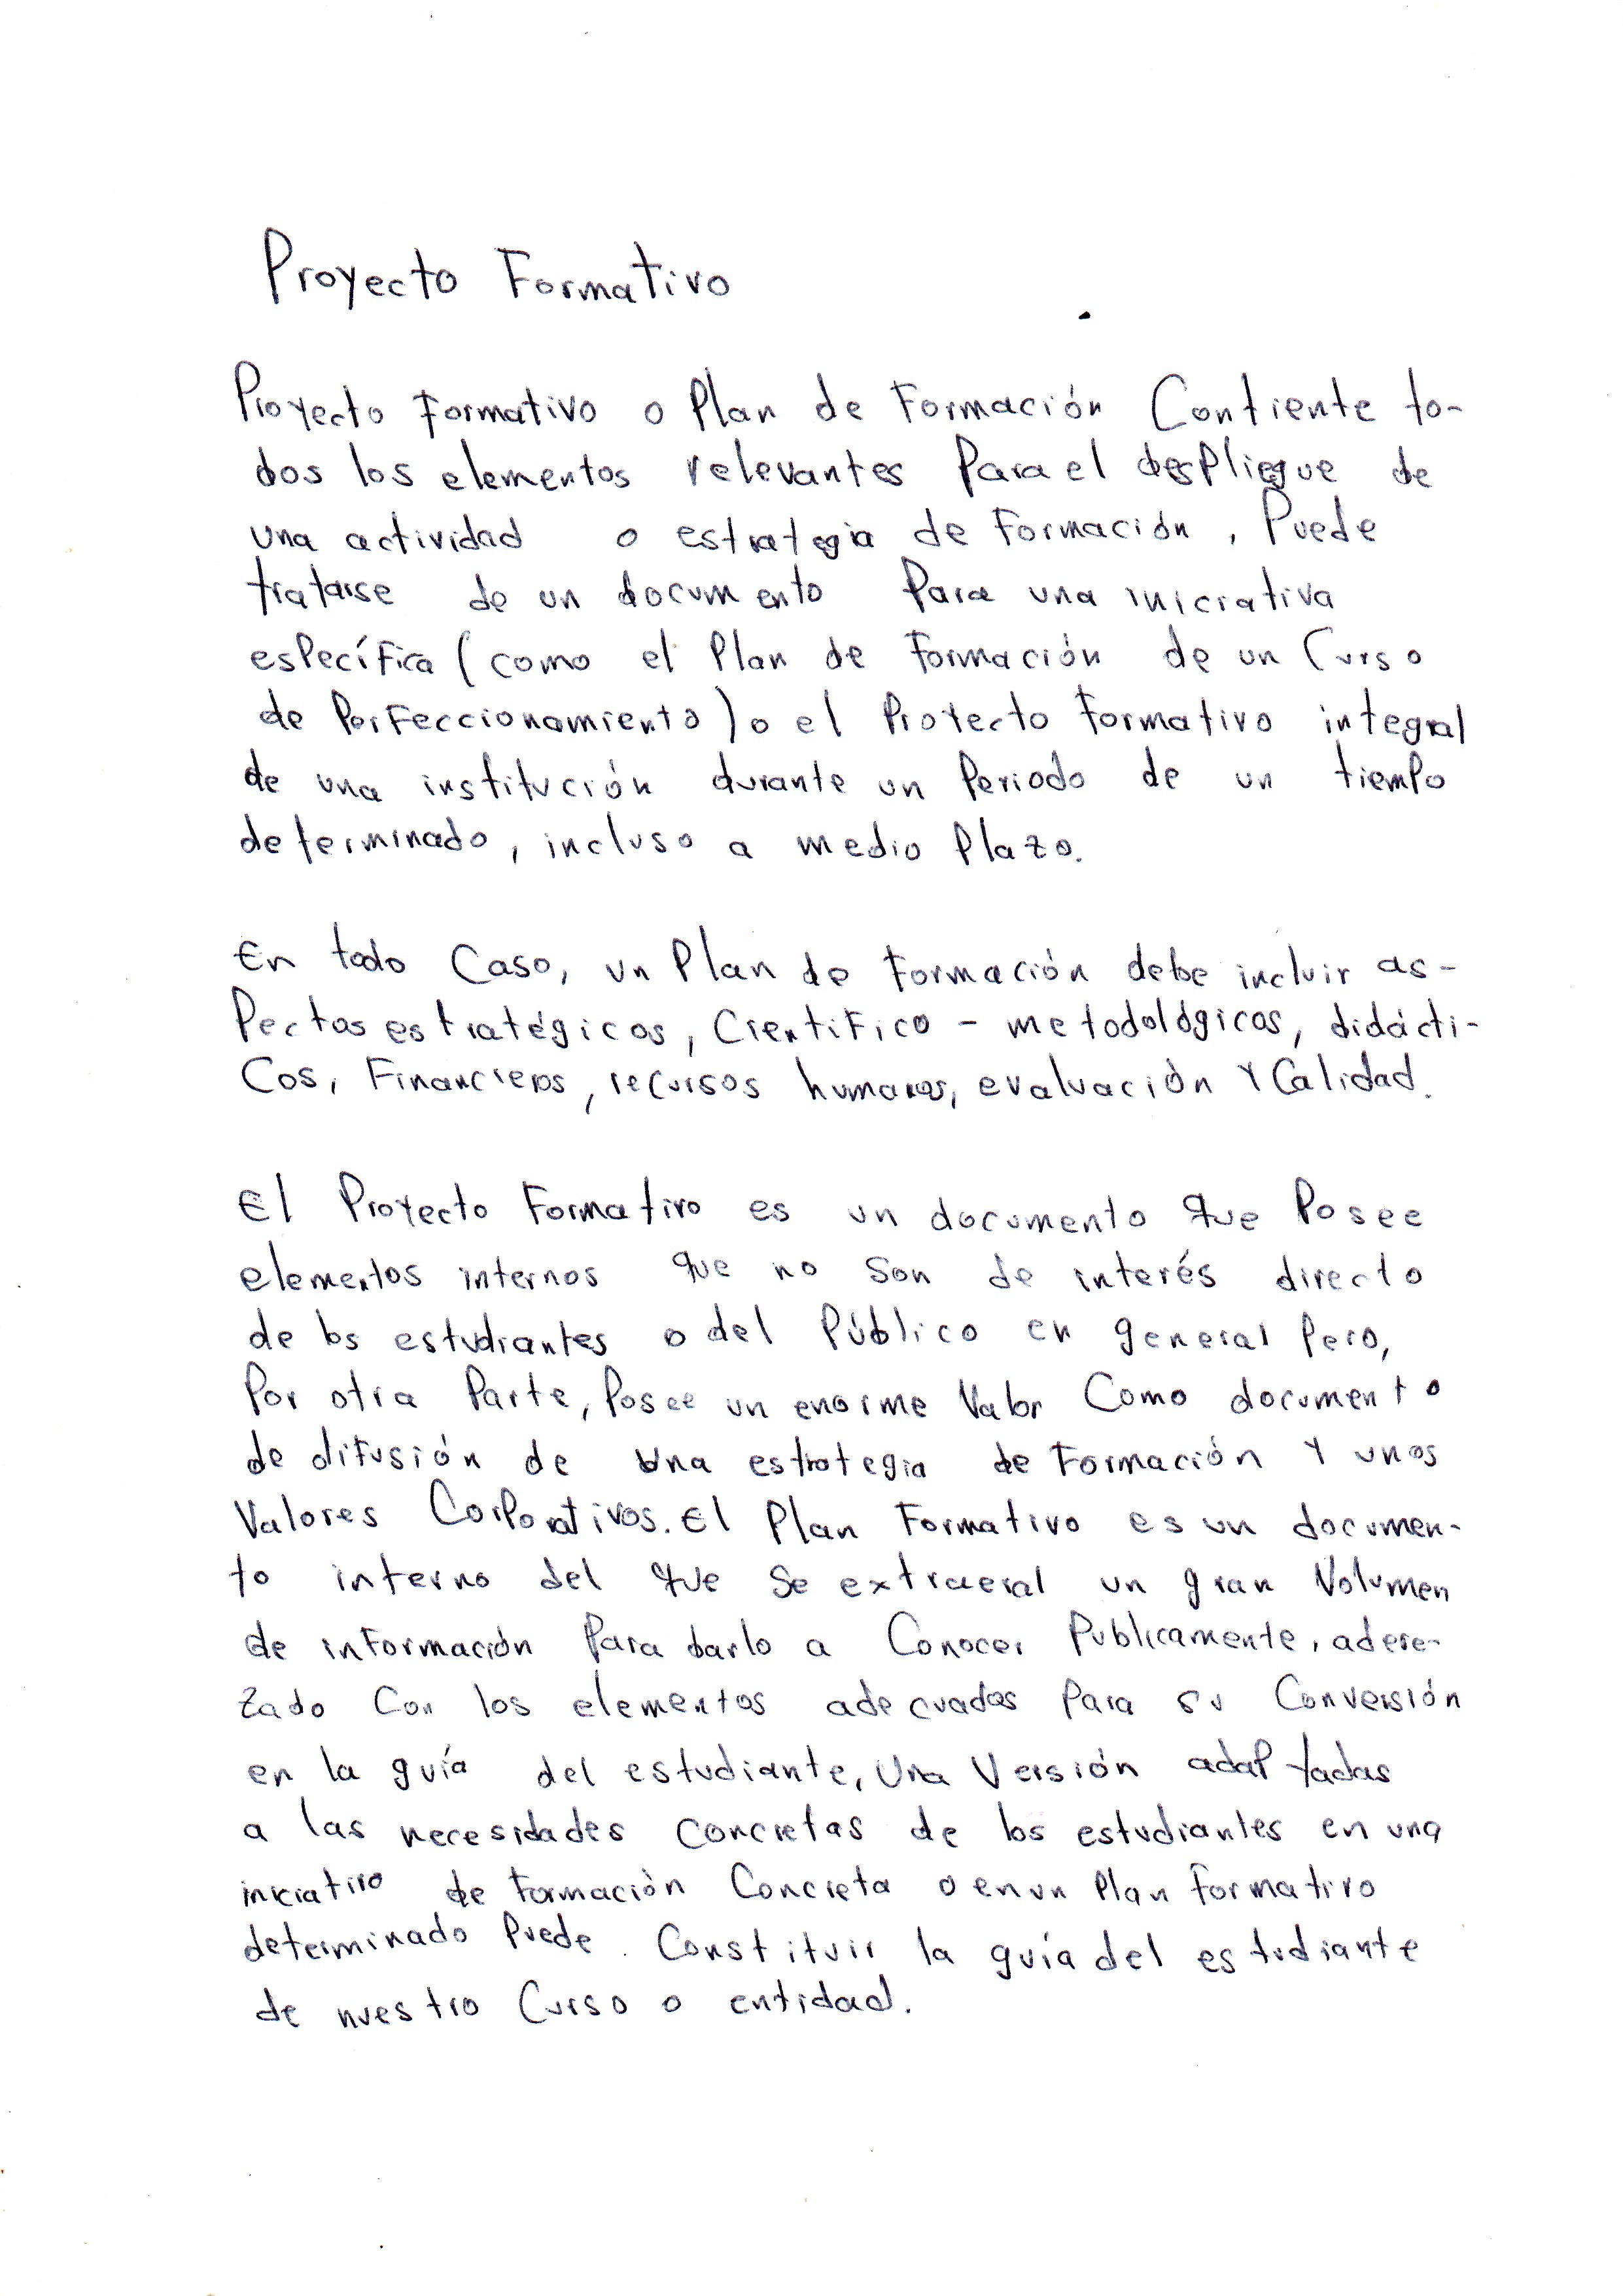 Proyecto Formativo
Proyecto Formativo o Plan de Formación Contiente to-
dos los elementos relevantes Para el despliegue de
una actividad o estrategia de Formación, Puede
tratarse de un documento Para una iniciativa
específica (como el Plan de Formación de un Curso
de Perfeccionamiento) o el Proyecto Formativo integral
de una institución durante un Periodo de un tiempo
determinado, incluso a medio Plazo.
En todo Caso, un Plan de Formación debe incluir as-
Pectos estratégicos, Científico - metodológicos, didácti-
Cos, Financieros, recursos humanos, evaluación Y Calidad.
El Proyecto Formativo es un documento que Posee
elementos internos que no son de interés directo
de los estudiantes o del Público en general Pero,
Por otra Parte, Posee un enorme Valor Como documento
de difusión de una estrategia de Formación Y unos
Valores Corporativos. El Plan Formativo es un documen-
to interno del que se extraeral un gran Volumen
de información Para darlo a Conocer Publicamente, adere-
zado Con los elementos adecuados Para su Conversión
en la guía del estudiante, Una Versión adaptadas
a las necesidades concretas de los estudiantes en una
iniciativo de Formación Concreta o en un Plan formativo
determinado Puede. Constituir la guía del estudiante
de nuestro Curso o entidad.